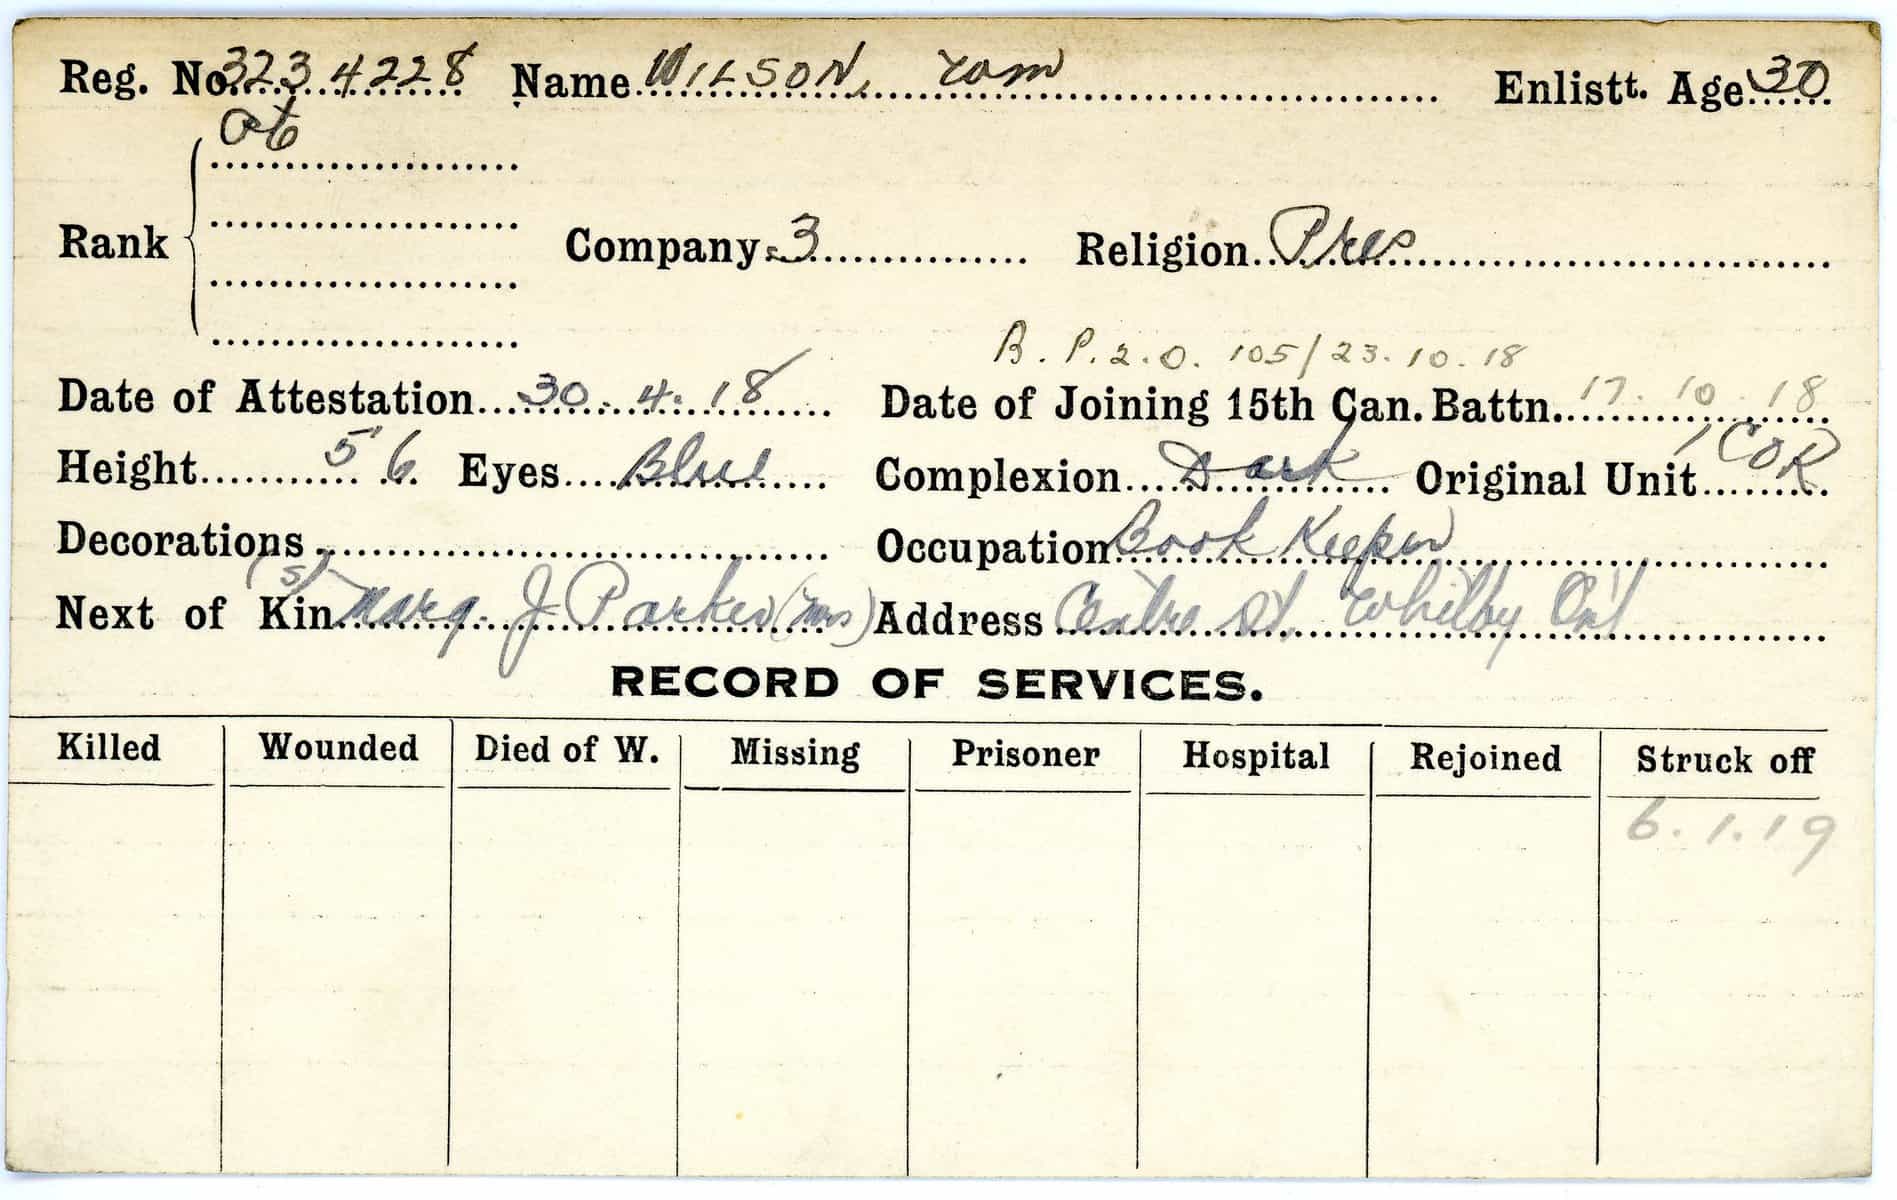 Reg. No. 3234228 Name WILSON, Wm Enlistt. Age 30
Pte
Rank Company 3 Religion Pres
B. P.2.O. 105/23.10.18
Date of Attestation 30.4.18 Date of Joining 15th Can. Battn. 17.10.18
Height 5' 6 Eyes Blue Complexion Dark Original Unit 1 COR
Decorations Occupation Book Keeper
(s)
Next of Kin Marg. J Parker (Mrs) Address Centre St. Whitby Ont
RECORD OF SERVICES.
Killed Wounded Died of W. Missing Prisoner Hospital Rejoined Struck off
6.1.19